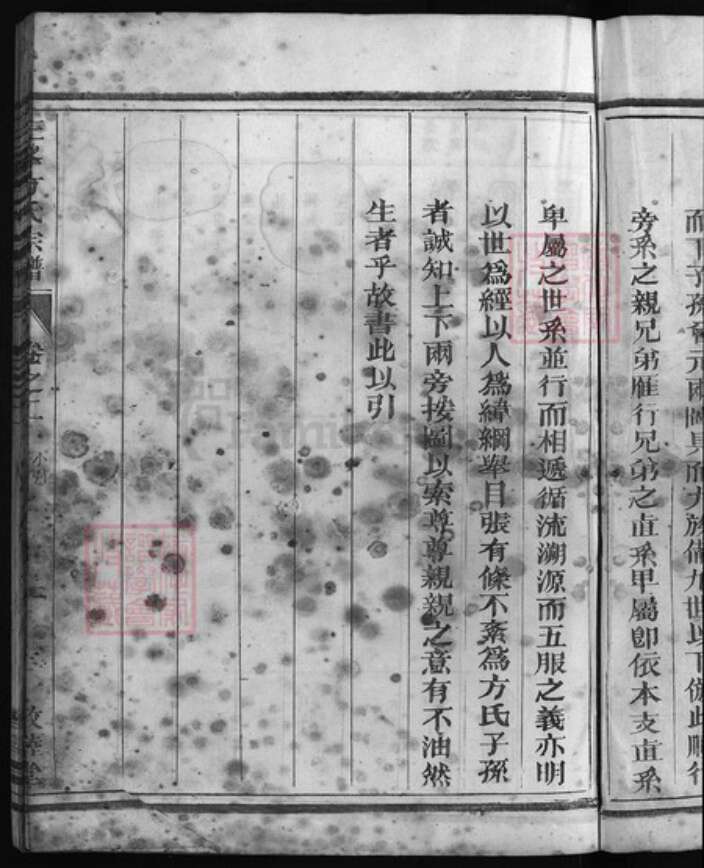 而下子孫曾元兩圖具而九族備九世以下倣此順行
旁系之親兄弟雁行兄弟之直系卑屬卽依本支直系
卑屬之世系並行而相遞循流溯源而五服之義亦明
以世爲經以人爲緯綱舉目張有條不紊爲方氏子孫
者誠知上下兩旁按圖以索尊尊親親之意有不油然
生者乎故書此以引
方氏宗譜
卷之
小引